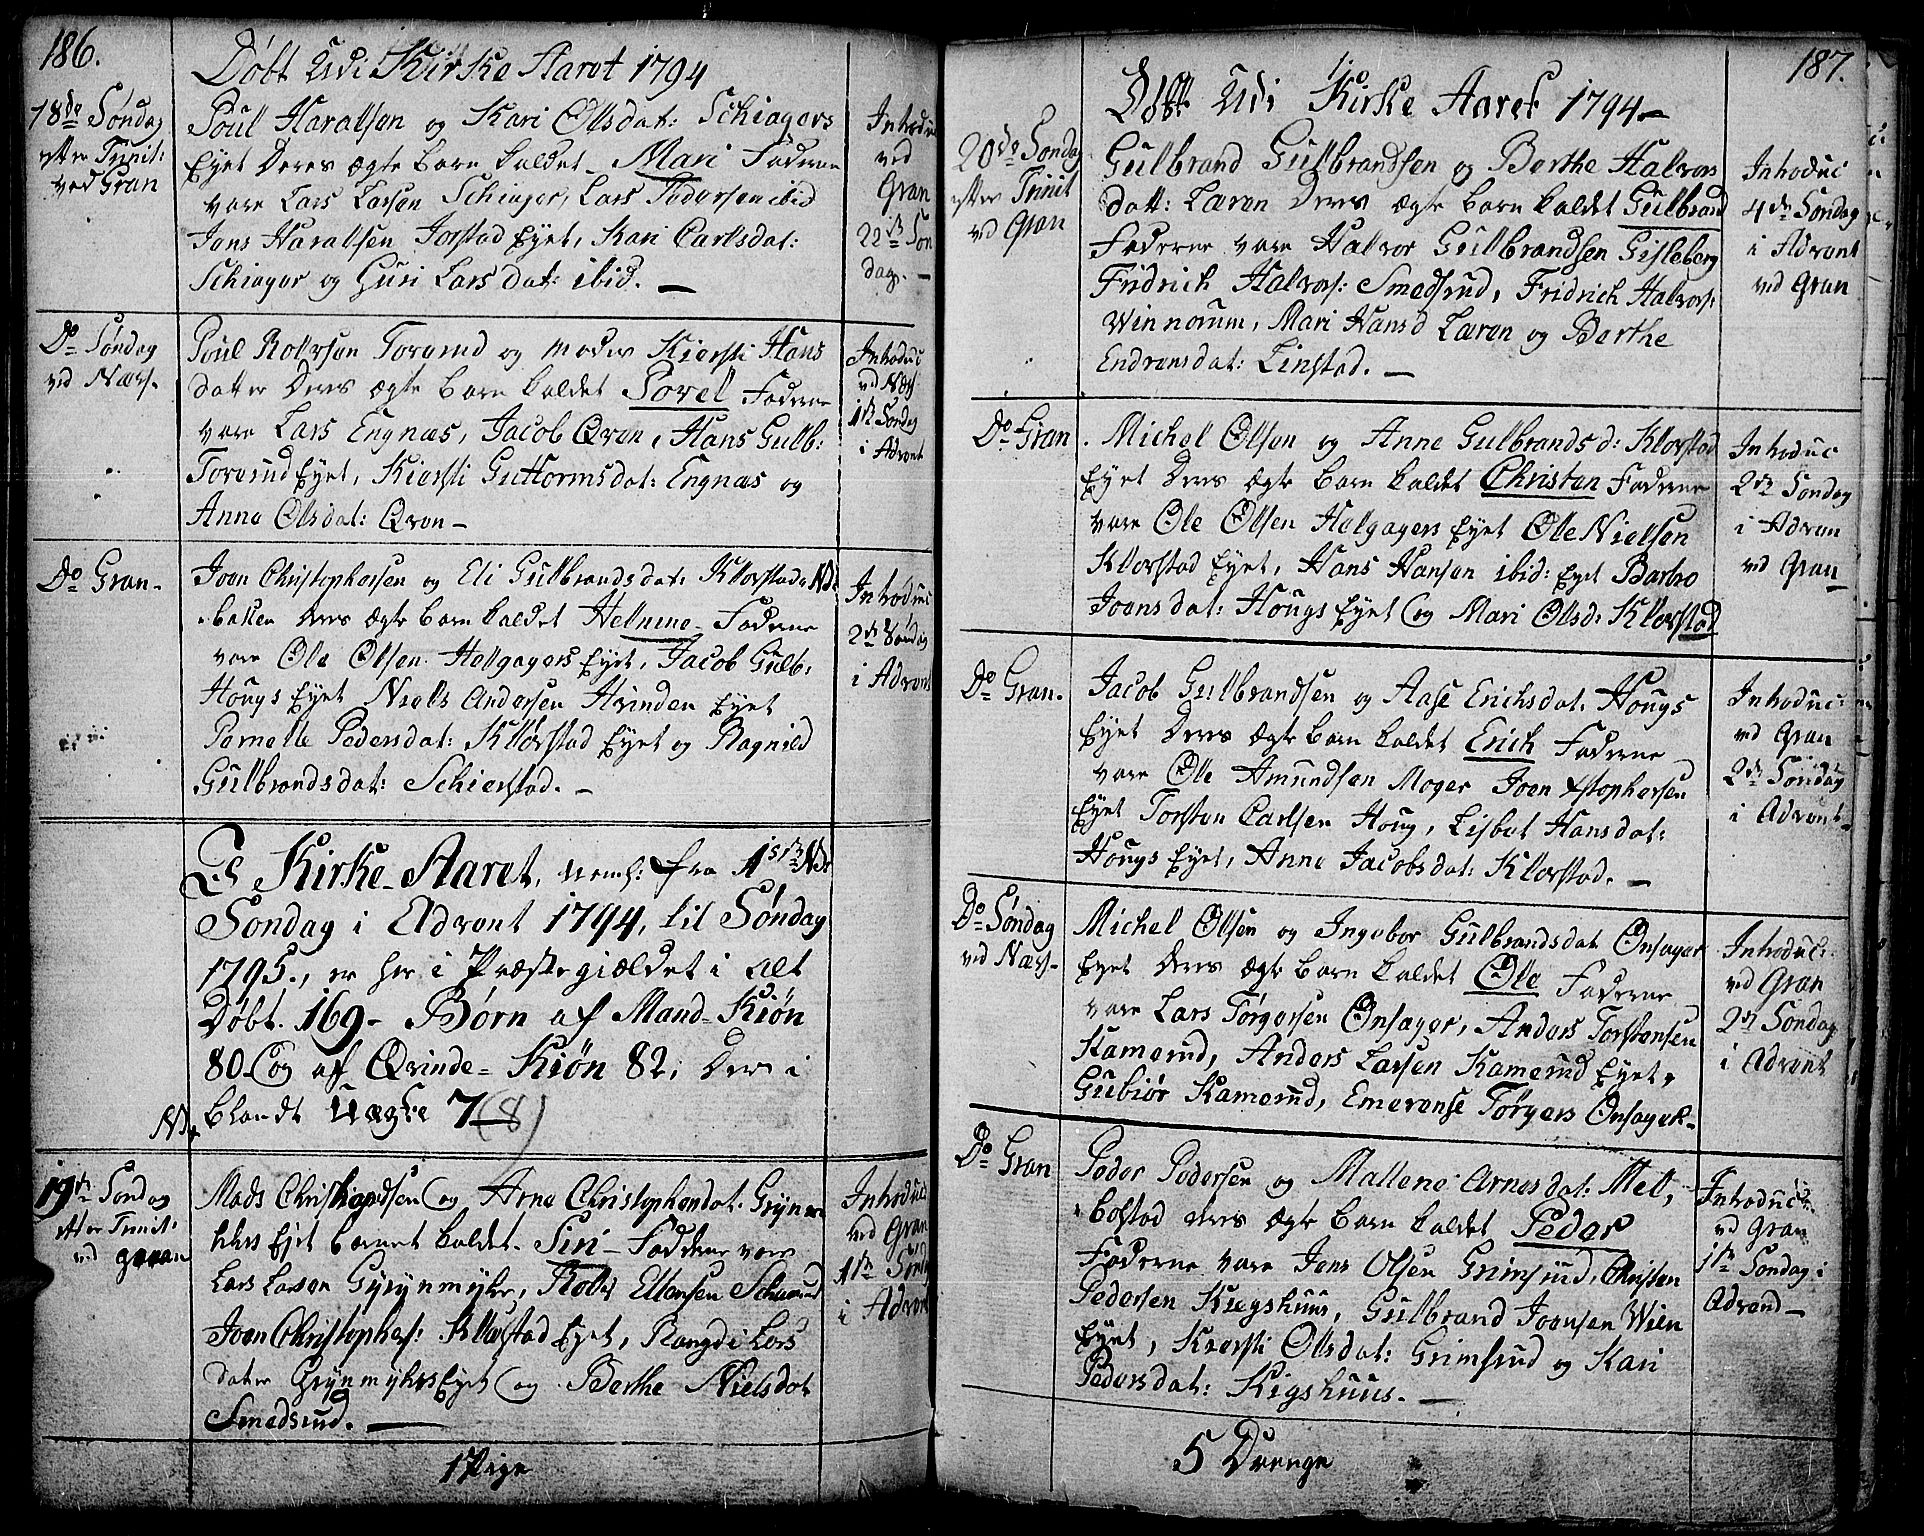 186.
Døbt Udi Kirke Aaret 1794
18de Søndag
efter Trinit:
ved Gran
Poul Haralsen og Kari Olsdat: Schiagers
Eyet Deres ægte Barn kaldet Mari Faderne
vare Lars Larsen Schiager, Lars Pedersen ibid
Jens Haralsen Jorstad Eyet, Kari Carlsdat:
Schiager og Guri Larsdat: ibid. —
Introduc
ved
Gran
22de Søn
dag. —
Do Søndag
ved Næs.
Poul Rolvsen Torsrud og Moder Kiersti Hans
datter Deres ægte Barn kaldet Povel Faderne
vare Lars Engnæs, Jacob Qvern, Hans Gulb:
Torsrud Eyet, Kiersti Guttormsdat: Engnæs og
Anne Olsdat: Qvern —
Introduc
ved Næs
1ste Søndag
i Advent
Do Gran.
Joen Christophersen og Eli Gulbrandsdat: Klæstad
bakken Deres ægte Barn kaldet Helmine Faderne
vare Ole Olsen Helgagers Eyet, Jacob Gulb:
Hougs Eyet Niels Andersen Hvinden Eyet
Pernelle Pedersdat: Kløvstad Eyet og Ragnild
Gulbrandsdat: Schierstad. —
Introduc
2den Søndag
i Advent
I Kirke-Aaret, neml: fra 1ste
Søndag i Advent 1794, til Søndag
1795., er her i Præstegiældet i alt
Døbt. 169 - Børn af Mand-Kiøn
80 og af Qvinde-Kiøn 82; Der i
blandt Uægte 7 (8)
19de Søndag
efter Trinit:
ved Gran
Mads Christophersen og Arne Christophersdat: Grynne
Eyet barnet kaldet Siri Fadderne vare
Lars Larsen Grynmyhr, Ellensen
Joen Christophers: Kløvstad Eyet, Rangdi Lars
datter Grynmyhrs Eyet og Berthe Nielsdat
Smedsrud. —
Introduc
ved Gran
1ste Sønd
i Advent
1 Pige
187.
Døbt Udi Kirke Aaret 1794 —
20de Søndag
efter Trinit
ved Gran
Gulbrand Gulbrandsen og Berthe Halvors
datt: Læren Deres ægte Barn kaldet Gulbrand
Faderne vare Halvor Gulbrandsen Gisleberg
Fridrich Halvors: Smedsrud, Fridrich Halvors:
Winnorum, Mari Hansd Læren og Berthe
Endresdat: Linstad. —
Introduc
4de Søndag
i Advent
ved Gran
Do Gran.
Michel Olsen og Anne Gulbrandsd: Klæstad
Eyet Deres ægte Barn kaldet Christen Faderne
vare Ole Olsen Helgagers Eyet Ole Nielsen
Klæstad Eyet, Hans Hansen ibid: Eyet Barbro
Joensdat: Hougs Eyet og Mari Olsd: Klæstad
Introduc
2den Søndag
i Adven
ved Gran
Do Gran.
Jacob Gulbrandsen og Aase Erichsdat: Hougs
Eyet Deres ægte Barn kaldet Erich Faderne
vare Ole Amundsen Moger Joen Xstophersen
Eyet Torsten Carlsen Houg, Lisbet Hansdat:
Hougs Eyet, Anne Jacobsdat: Klæstad. —
Introduc:
ved Gran
2den Søndag
i Advent
Do Søndag
ved Næs.
Michel Olsen og Ingebor Gulbrandsdat Onsager
Eyet Deres ægte Barn kaldet Ole Faderne
vare Lars Tørgersen Onsager, Anders Torstensen
Kamerud, Anders Larsen Kamerud Eyet,
Gubiør Kamerud, Emerense Tørgers Onsager.
Introduc:
ved Gran
2den Søndag
i Advent
Do Gran
Peder Pedersen og Mallene Arnesdat: Mel,
bostad Deres ægte Barn kaldet Peder
Faderne vare Jens Olsen Grimsrud, Christen
Pedersen Kiegshuus, Gulbrand Joensen Wien
Eyet, Kiersti Olsdat: Grimsrud og Kari
Pedersdat: Kigshuus. —
Introduc:
ved Gran
1ste Søndag i
Advend —
5 Drenge